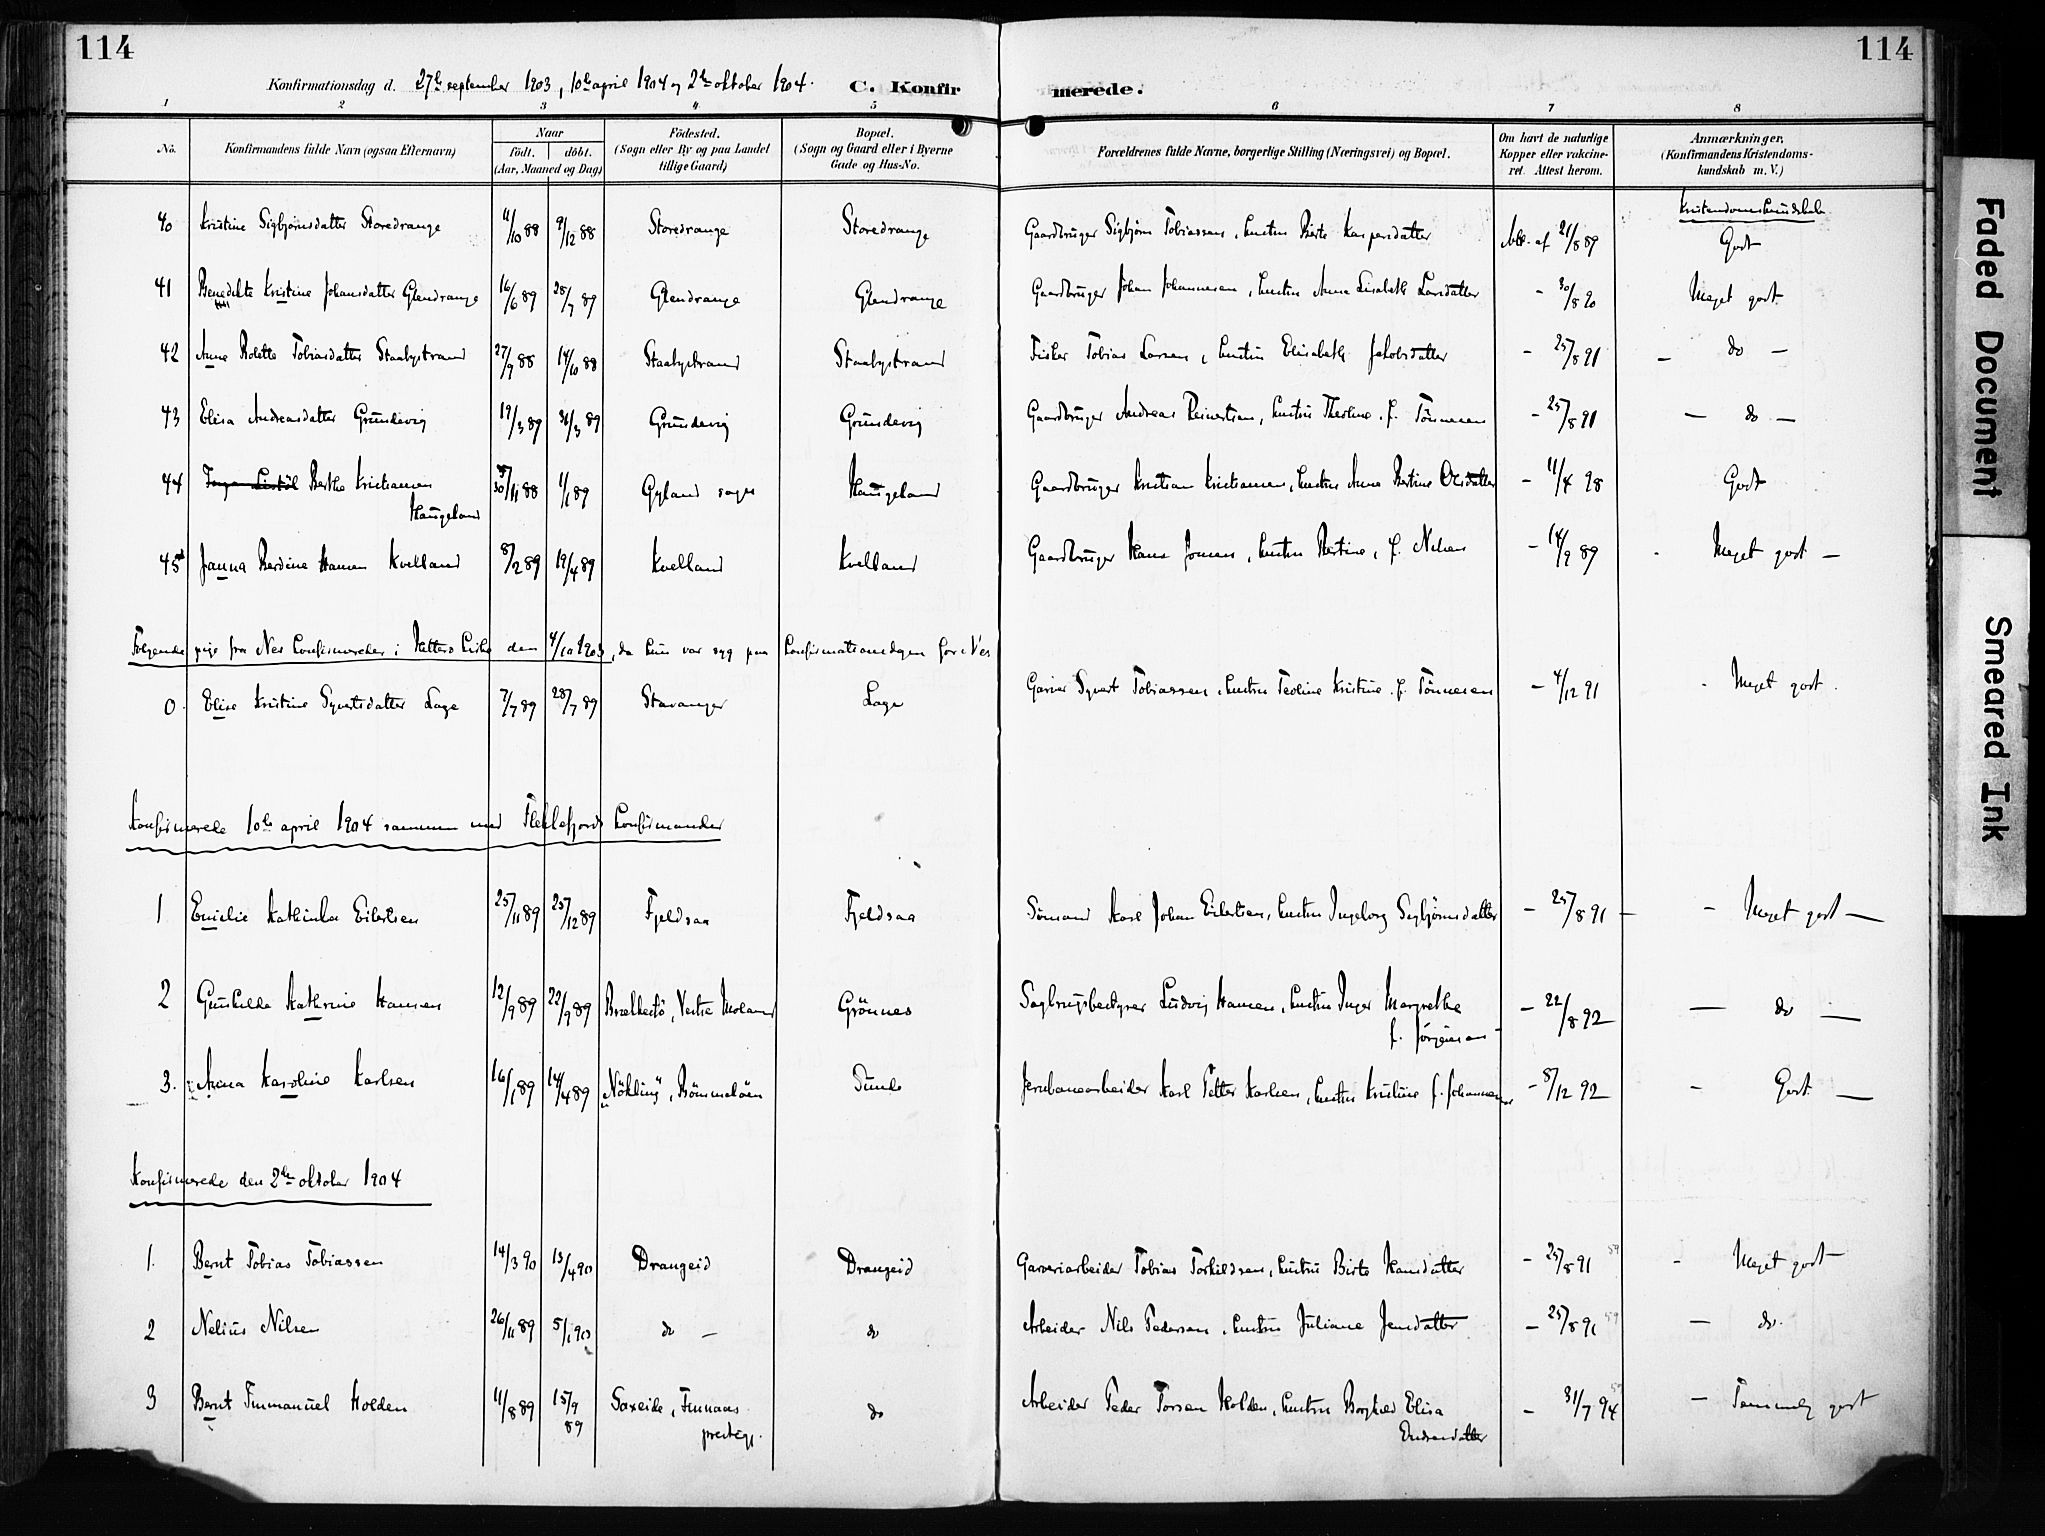 114
114
Konfirmationsdag d. 27de september 1903, 10de april 1904 og 2den oktober 1904.
C. Konfir
merede.
1 2 3 4 5 6 7 8
No. Konfirmandens fulde Navn (ogsaa Efternavn) Naar födt. döbt. (Aar, Maaned og Dag) Födested. (Sogn eller By og paa Landet tillige Gaard) Bopæl. (Sogn og Gaard eller i Byerne Gade og Hus-No. Forældrenes fulde Navne, borgerlige Stilling (Næringsvei) og Bopæl. Om havt de naturlige Kopper eller vakcineret. Attest herom. Anmærkninger, (Konfirmandens Kristendomskundskab m. V.)
Kristendomskundskab
40 Kristine Sigbjørnsdatter Storedrange 11/10 88 9/12 88 Storedrange Storedrange Gaardbruger Sigbjørn Tobiassen, hustru Berte Kaspersdatter Att. af 21/8 89 Godt
41 Benedikte Kristine Johansdatter Glendrange 16/6 89 28/7 89 Glendrange Glendrange Gaardbruger Johan Johannesen, hustru Anna Lisabeth Larsdatter - 30/8 90 Meget godt
42 Anna Bolette Tobiasdatter Staabystrand 27/9 88 14/10 88 Staabystrand Staabystrand Fisker Tobias Larsen, hustru Elisabeth Jakobsdatter - 25/8 91 - do -
43 Elisa Andreasdatter Grundevig 19/3 89 31/3 89 Grundevig Grundevig Gaardbruger Andreas Reinertsen, hustru Theoline f. Tönnesen - 25/8 91 - do -
44 Berthe Kristiansen Haugeland 30/11 88 1/1 89 Gyland sogn Haugeland Gaardbruger Kristian Kristiansen, hustru Anna Bertine Olsdatter - 11/4 98 Godt
45 Janna Berdine Hansen Kvelland 8/2 89 19/4 89 Kvelland Kvelland Gaardbruger Hans Jonsen, hustru Bertine, f. Nilsen - 14/9 89 - Meget godt -
Følgende pige fra Nes konfirmeredes i Hitterø kirke den 4/10 1903, da hun var syg paa konfirmationsdagen for Nes
0. Elise Kristine Syvertsdatter Loge 7/7 89 28/7 89 Stavanger Loge Garver Syvert Tobiassen, hustru Teoline Kristine f. Tönnesen - 4/12 91 - Meget godt.
Konfirmerede 10de april 1904 sammen med Flekkefjords konfirmander
1 Emilie Kathinka Eilertsen 25/11 89 25/12 89 Fjeldsaa Fjeldsaa Sömand Karl Johan Eilertsen, hustru Ingeborg Sigbjörnsdatter - 25/8 91 - - Meget godt -
2 Gunhilda Kathrine Hansen 12/9 89 22/9 89 Brækkestö, Vestre Moland Grönnes Sagbrugsbestyrer Ludvig Hansen, hustru Inger Margrethe f. Jörgensen - 22/8 92 - do -
3. Anna Karoline Karlsen 16/1 89 14/4 89 Nökling, Bömmeløen Sunde Jernbanearbeider Karl Petter Karlsen, hustru Kristine f. Johannessen - 8/12 92 - Godt -
Konfirmerede den 2den oktober 1904
1. Bernt Tobias Tobiassen 14/3 90 13/4 90 Drangeid Drangeid Garveriarbeider Tobias Torkildsen, hustru Birte Hansdatter - 25/8 91 - Meget godt -
2 Nelius Nilsen 26/11 89 5/1 90 do - do Arbeider Nils Pedersen, hustru Juliane Jensdatter - 25/8 91 - do.
3 Bernt Immanuel Holden 11/8 89 15/9 89 Soxeide, Finnaas prestegj. do Arbeider Peder Torsen Holden, hustru Borghild Elisa Endresdatter - 31/7 94 - Temmelig godt
Faded Document
Smeared Ink